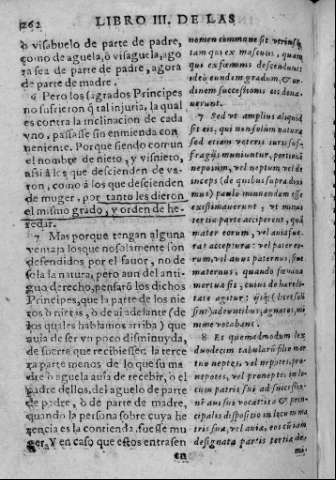 262 LIBRO III. DE LAS
ò visabuelo de parte de padre,
como de aguela, ò visaguela, ago
ra sea de parte de padre, agora
de parte de madre.
6 Pero los sagrados Principes
no sufrieron q̃ tal injuria, la qual
es contra la inclinacion de cada
vno, passasse sin enmienda con
ueniente. Porque siendo comun
el nombre de nieto, y visnieto,
assi à los que descienden de va-
ron, como à los que descienden
de muger, por tanto les dieron
el mismo grado, y orden de he-
redar.
7 Mas porque tengan alguna
ventaja los que no solamente son
defendidos por el fauor, no de
sola la natura, pero aun del anti-
guo derecho, pensarõ los dichos
Principes, que la parte de los nie
tos ò nietas, ò de ai adelante (de
los quales hablamos arriba) que
auia de ser vn poco disminuyda,
de suerte que recibiesse la terce
ra parte menos de lo que su ma
dre ò aguela auia de recebir, ò el
padre dellos, del aguelo de parte
de padre, ò de parte de madre,
quando la persona sobre cuya he
rencia es la contienda, fuesse mu
ger. Y en caso que estos entrasen
en
nomen commune sit vtrisq́;
tam qui ex masculis, quam
qui ex fœminis descendunt:
ideò eundem gradum, & or-
dinem successionis eis dona-
uerunt.
7 Sed vt amplius aliquid
sit eis, qui non solùm naturæ
sed etiam veteris iuris suf-
fragijs muniuntur, portionẽ
nepotum, vel neptum vel de-
inceps (de quibus supra dixi
mus) paulò minuendam esse
existimauerunt: vt minus
tertiam partem acciperent,
quàm mater eorum, vel auia fue-
rat acceptura: vel pater eo-
rum, vel auus paternus, siue
maternus, quando fœmina
mortua sit, cuius de hære-
ditate agitur:
mine vocabant.
8 Et quemadmodum lex
duodecim tabularũ filio mor
tuo nepotes, vel neptes, vel pronepotes in lo-
cum patris sui ad successio-